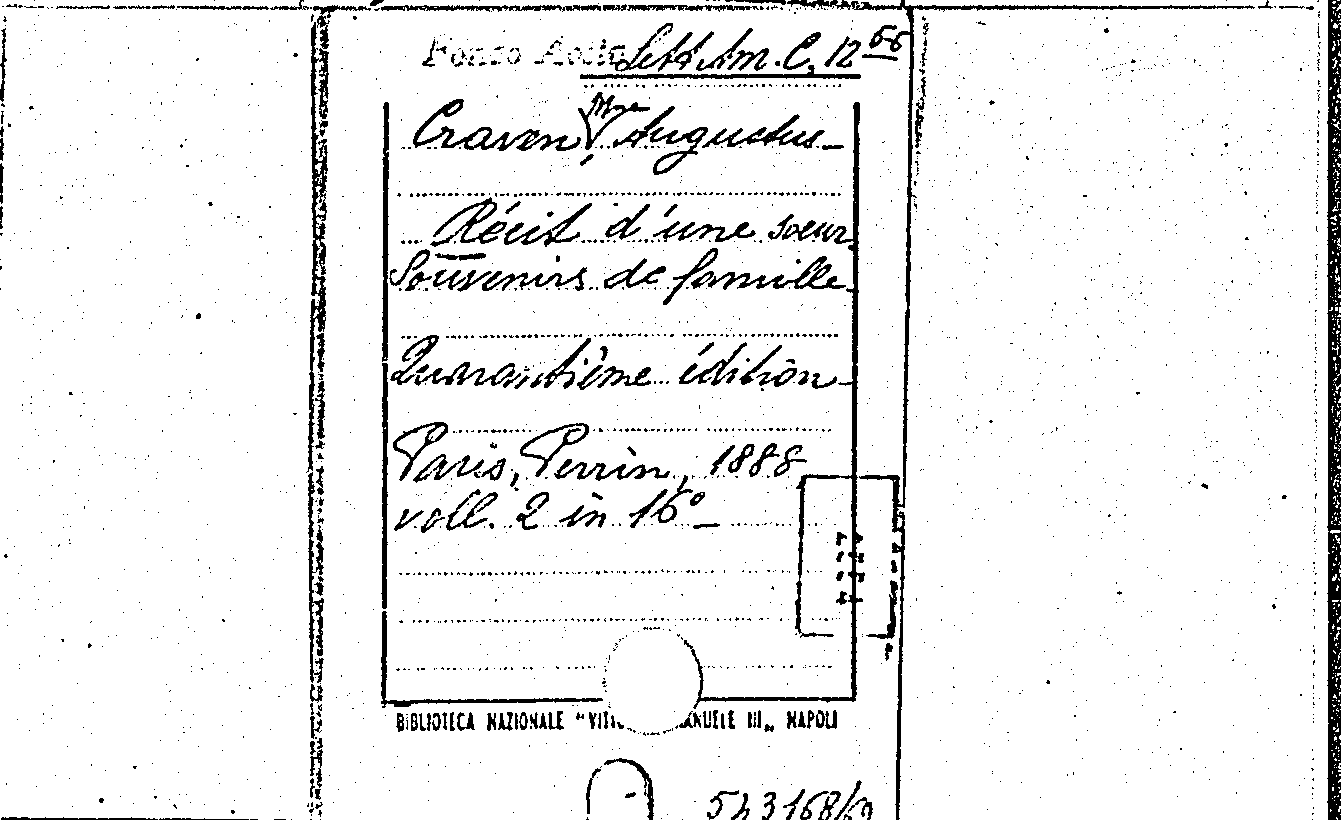 Fondo Aosta Sett. Am. C. 12 55
Craven, Mme Augustus_
Récit d'une soeur.
Souvenirs de famille.
Quarantième édition_
Paris, Perrin, 1888
voll. 2 in 16°_
BIBLIOTECA NAZIONALE "VITT ANUELE III„ NAPOLI